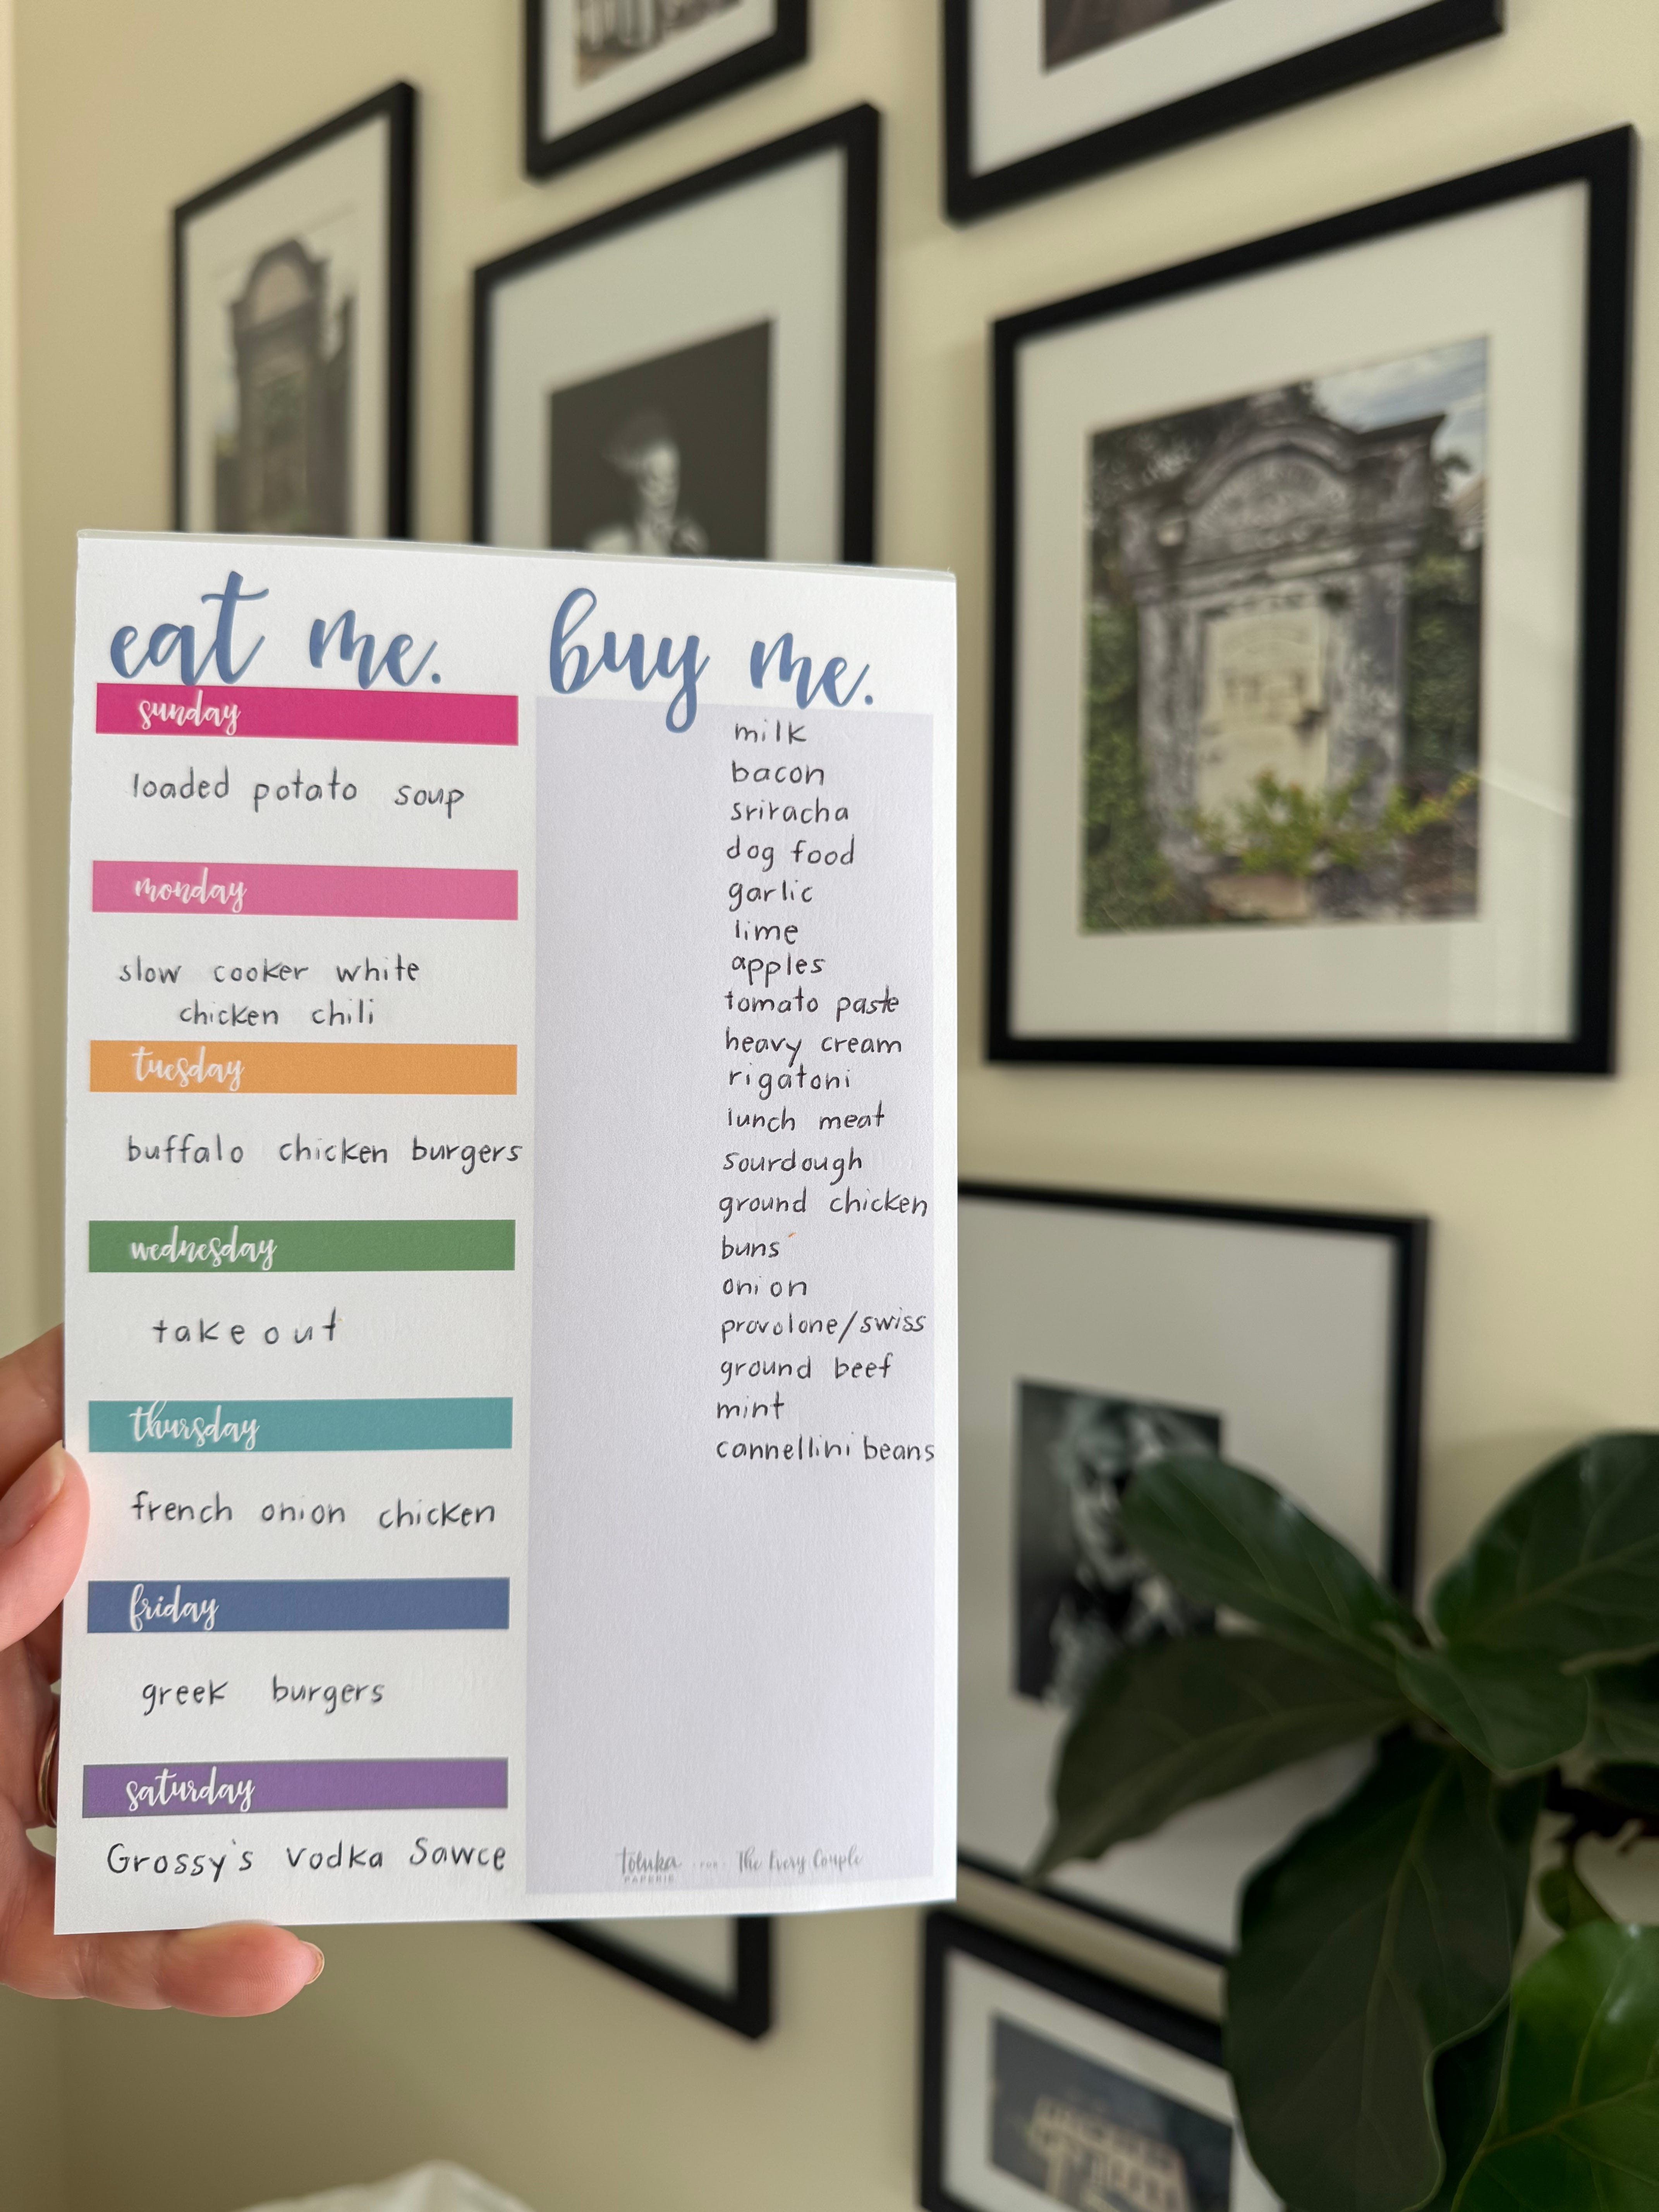 eat me.
sunday
loaded potato soup
monday
slow cooker white
chicken chili
tuesday
buffalo chicken burgers
wednesday
takeout
thursday
french onion chicken
friday
greek burgers
saturday
Grossy's vodka Sawce
buy me.
milk
bacon
sriracha
dog food
garlic
lime
apples
tomato paste
heavy cream
rigatoni
lunch meat
sourdough
ground chicken
buns
onion
provolone/swiss
ground beef
mint
cannellini beans
toluka FOR The Every Couple
PAPERIE